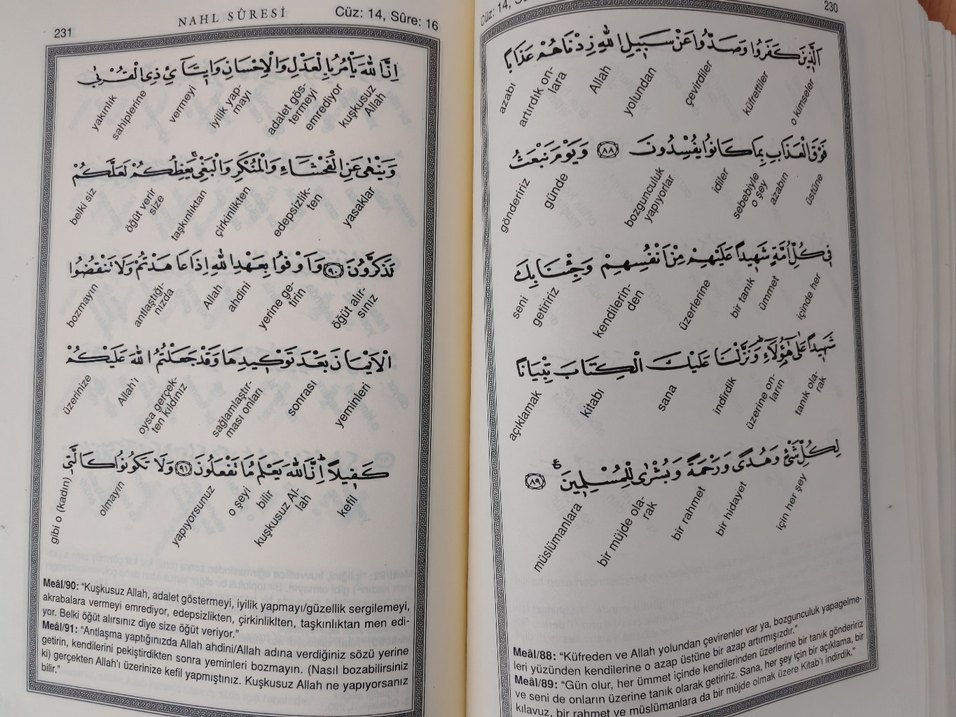 230
Cüz: 14, Sû
اَلَّذٖينَ كَفَرُوا وَصَدُّوا عَنْ سَبٖيلِ اللّٰهِ زِدْنَاهُمْ عَذَابًا
o kimseler küfrettiler çevirdiler yolundan Allah artırdık on-lara azabı
فَوْقَ الْعَذَابِ بِمَا كَانُوا يُفْسِدُونَ ﴿٨٨﴾ وَيَوْمَ نَبْعَثُ
üstüne azabın sebebiyle o şey idiler bozgunculuk yapıyorlar günde göndeririz
فٖى كُلِّ اُمَّةٍ شَهٖيدًا عَلَيْهِمْ مِنْ اَنْفُسِهِمْ وَجِئْنَا بِكَ
içinde her ümmet bir tanık üzerlerine kendilerin-den getiririz seni
شَهٖيدًا عَلٰى هٰٓؤُلَٓاءِ وَنَزَّلْنَا عَلَيْكَ الْكِتَابَ تِبْيَانًا
tanık ola-rak üzerine on-ların indirdik sana kitabı açıklamak
لِكُلِّ شَىْءٍ وَهُدًى وَرَحْمَةً وَبُشْرٰى لِلْمُسْلِمٖينَ ﴿٨٩﴾
için her şey bir hidayet bir rahmet bir müjde ola-rak müslümanlara
Meâl/88: “Küfreden ve Allah yolundan çevirenler var ya, bozgunculuk yapagelme-
leri yüzünden kendilerine o azap üstüne bir azap artırmışızdır.”
Meâl/89: “Gün olur, her ümmet içinde kendilerinden üzerlerine bir tanık göndeririz
ve seni de onların üzerine tanık olarak getiririz. Sana, her şey için bir açıklama, bir
kılavuz, bir rahmet ve müslümanlara da bir müjde olmak üzere Kitab'ı indirdik.”
231
NAHL SÛRESİ
Cüz: 14, Sûre: 16
اِنَّ اللّٰهَ يَاْمُرُ بِالْعَدْلِ وَالْاِحْسَانِ وَاٖيتَٓائِ ذِى الْقُرْبٰى
kuşkusuz Allah emrediyor adalet gös-termeyi iyilik yap-mayı vermeyi sahiplerine yakınlık
وَيَنْهٰى عَنِ الْفَحْشَٓاءِ وَالْمُنْكَرِ وَالْبَغْىِ يَعِظُكُمْ لَعَلَّكُمْ
yasaklar edepsizlik-ten çirkinlikten taşkınlıktan öğüt verir size belki siz
تَذَكَّرُونَ ﴿٩٠﴾ وَاَوْفُوا بِعَهْدِ اللّٰهِ اِذَا عَاهَدْتُمْ وَلَا تَنْقُضُوا
öğüt alır-sınız yerine ge-tirin ahdini Allah antlaştığı-nızda bozmayın
الْاَيْمَانَ بَعْدَ تَوْكٖيدِهَا وَقَدْ جَعَلْتُمُ اللّٰهَ عَلَيْكُمْ
yeminleri sonrası sağlamlaştır-ması onları oysa gerçek-ten kıldınız Allah'ı üzerinize
كَفٖيلًا اِنَّ اللّٰهَ يَعْلَمُ مَا تَفْعَلُونَ ﴿٩١﴾ وَلَا تَكُونُوا كَالَّتٖى
kefil kuşkusuz Al-lah bilir o şeyi yapıyorsunuz olmayın gibi o (kadın)
Meâl/90: “Kuşkusuz Allah, adalet göstermeyi, iyilik yapmayı/güzellik sergilemeyi,
akrabalara vermeyi emrediyor, edepsizlikten, çirkinlikten, taşkınlıktan men edi-
yor. Belki öğüt alırsınız diye size öğüt veriyor.”
Meâl/91: “Antlaşma yaptığınızda Allah ahdini/Allah adına verdiğiniz sözü yerine
getirin, kendilerini pekiştirdikten sonra yeminleri bozmayın. (Nasıl bozabilirsiniz
ki) gerçekten Allah'ı üzerinize kefil yapmıştınız. Kuşkusuz Allah ne yapıyorsanız
bilir.”